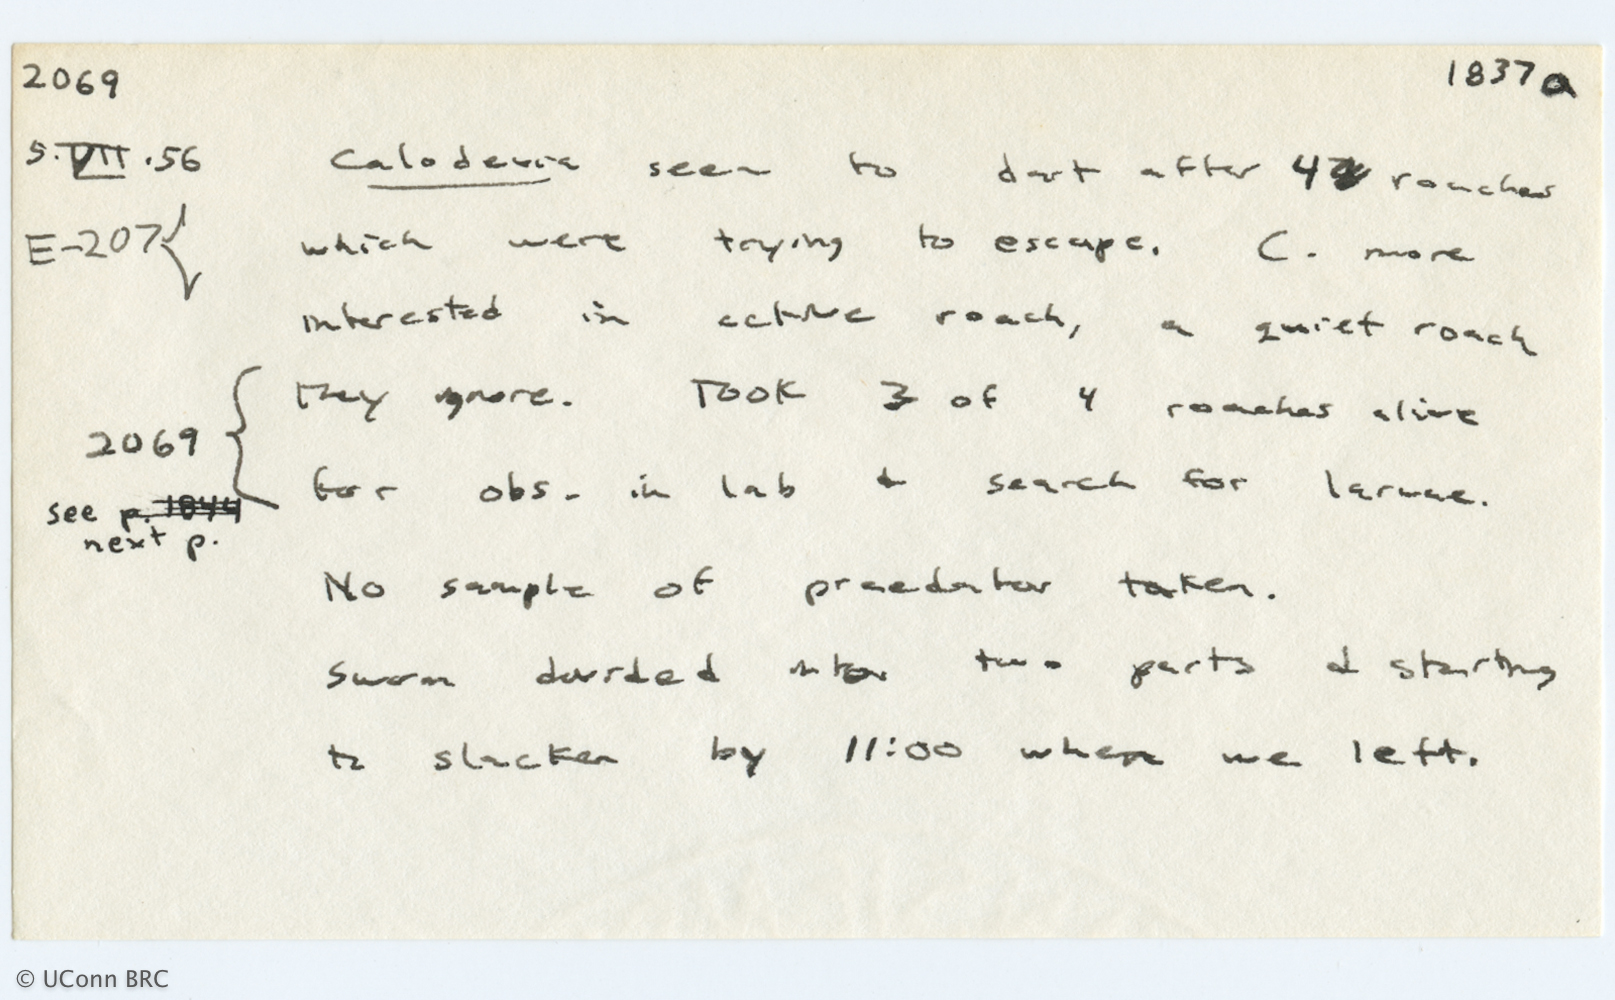 2069 1837a
5.VII.56 Calodexia seen to dart after 4 roaches
E-207 which were trying to escape. C. more
interested in active roach, a quiet roach
they ignore. Took 3 of 4 roaches alive
2069
for obs. in lab & search for larvae.
see p. 1844
next p.
No sample of praedator taken.
Swarm divided into two parts & starting
to slacken by 11:00 when we left.
© UConn BRC